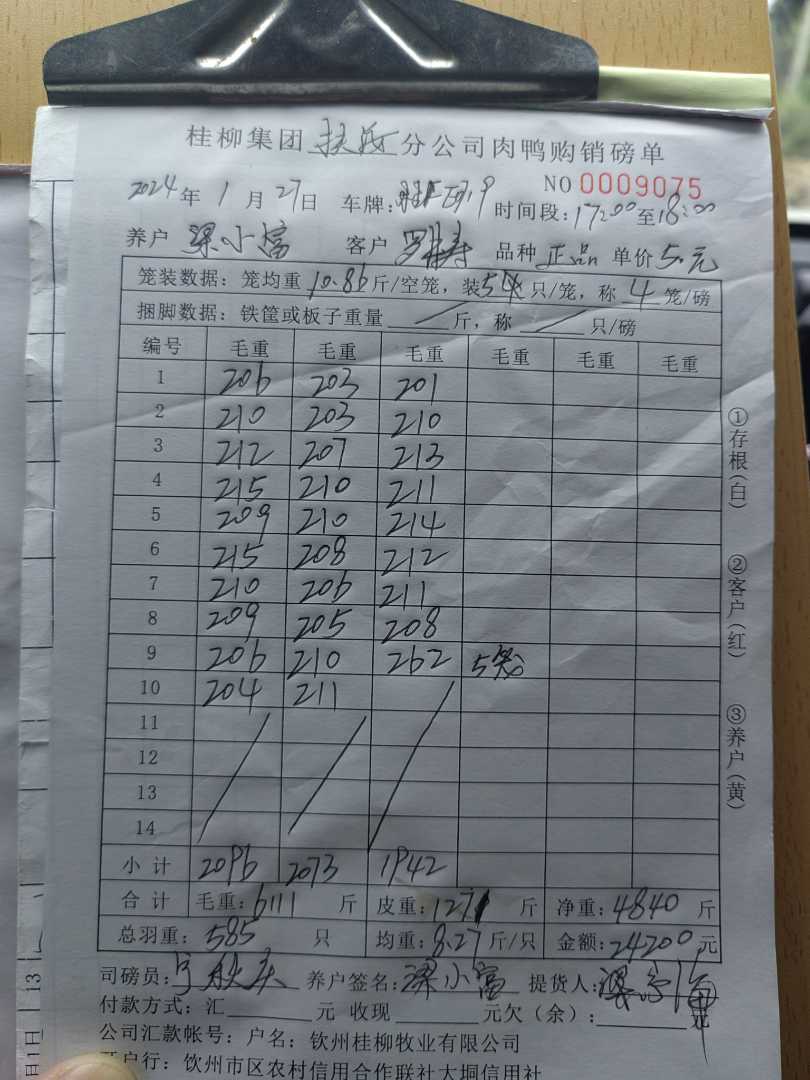 桂柳集团 分公司肉鸭购销磅单
NO 0009075
2024年 1月 27日 车牌: 时间段:17:00至18:00
养户 梁小富 客户 品种 正品 单价 5.元
笼装数据:笼均重 10.86 斤/空笼,装 5 只/笼,称 4 笼/磅
捆脚数据:铁筐或板子重量 / 斤,称 / 只/磅
编号 毛重 毛重 毛重 毛重 毛重 毛重
1 206 203 201
2 210 203 210
3 212 207 213
4 215 210 211
5 209 210 214
6 215 208 212
7 210 206 211
8 209 205 208
9 206 210 262 5笼
10 204 211
11
12
13
14
小计 2096 2073 1942
合计 毛重:6111 斤 皮重:1271 斤 净重:4840 斤
总羽重:585 只 均重:8.27 斤/只 金额:24200 元
司磅员: 养户签名:梁小富 提货人:
付款方式:汇 元 收现 元欠(余): 元
公司汇款帐号:户名:钦州桂柳牧业有限公司
开户行:钦州市区农村信用合作联社大垌信用社
①存根(白)
②客户(红)
③养户(黄)